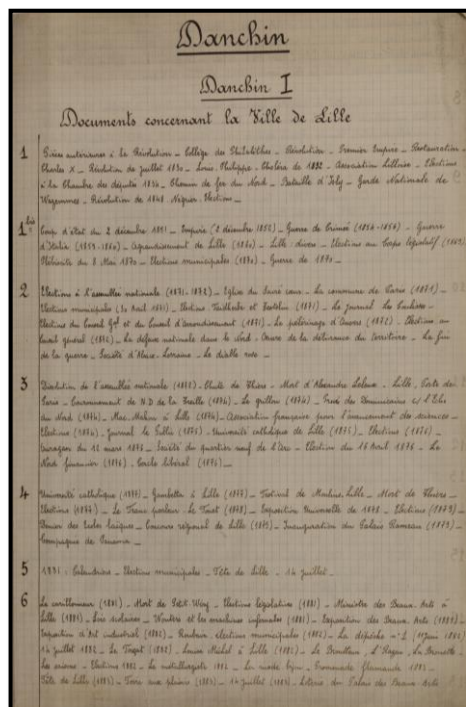 Danchin
Danchin I
Documents concernant la Ville de Lille
1 Pièces antérieures à la Révolution - Collège des Philalèthes - Révolution - Premier Empire - Restauration -
Charles X - Révolution de juillet 1830 - Louis Philippe - Choléra de 1832 - Association Lilloise - Elections
à la Chambre des députés 1834 - Chemin de fer du Nord - Bataille d'Isly - Garde Nationale de
Wazemmes - Révolution de 1848. Négrier. Elections -
1 bis Coup d'état du 2 décembre 1851 - Empire (2 décembre 1852) - Guerre de Crimée (1854-1856) - Guerre
d'Italie (1859-1860) - Agrandissement de Lille (1860) - Lille : divers - Elections au Corps législatif (1869)
Plébiscite du 8 Mai 1870 - Elections municipales (1870) - Guerre de 1870 -
2 Elections à l'assemblée nationale (1871-1872) - Eglise du Sacré coeur - La commune de Paris (1871) -
Elections municipales (30 Avril 1871) - Elections Faidherbe et Testelin (1871) - Le journal
Elections du Conseil Gal et du Conseil d'arrondissement (1871) - Le pèlerinage d'Anvers (1872) - Elections au
Conseil général (1872) - La défense nationale dans le Nord - Oeuvre de la délivrance du territoire - La fin
de la guerre - Société d'Alsace-Lorraine - Le diable rose -
3 Dissolution de l'assemblée nationale (1872) - Chute de Thiers - Mort d'Alexandre Leleux - Lille, Porte de
Paris - Couronnement de N.D. de la Treille (1874) - Le grillon (1874) - Procès des Dominicains c/ l'Echo
du Nord (1874) - Mac-Mahon à Lille (1874) - Association française pour l'avancement des sciences -
Elections (1874) - Journal le (1875) - Université catholique de Lille (1875) - Elections (1876) -
Ouragan du 12 mars 1876 - Société du quartier neuf de l'Arc - Election du 16 Avril 1876 - Le
Nord financier (1876) - Cercle libéral (1876) -
4 Université catholique (1877) - Gambetta à Lille (1877) - Festival de Moulins, Lille - Mort de Thiers
Elections (1877) - Le Franc parleur - Le (1878) - Exposition Universelle de 1878 - Elections (1878)
Denier des écoles laïques - Concours régional de Lille (1879) - Inauguration du Palais Rameau (1879) -
Compagnie de Panama -
5 1881 : Calendriers - Elections municipales - Fête de Lille - 14 juillet -
6 Le carillonneur (1881) - Mort de Petit - Elections législatives (1881) - Ministère des Beaux-Arts à
Lille (1881) - Lois scolaires - et les écrevisses infernales (1881) - Exposition des Beaux-Arts (1881)
Exposition d'Art industriel (1882) - - élections municipales (1882) - La dépêche n° 1 (1882)
14 juillet 1882 - Le (1882) - Louise Michel à Lille (1882) - Le -
La - Elections 1882 - Le métallurgiste 1882 - La mode - Promenade flamande 1882
Fête de Lille (1883) - Foire aux plaisirs (1883) - 14 juillet (1883) - Loterie du Palais des Beaux-Arts